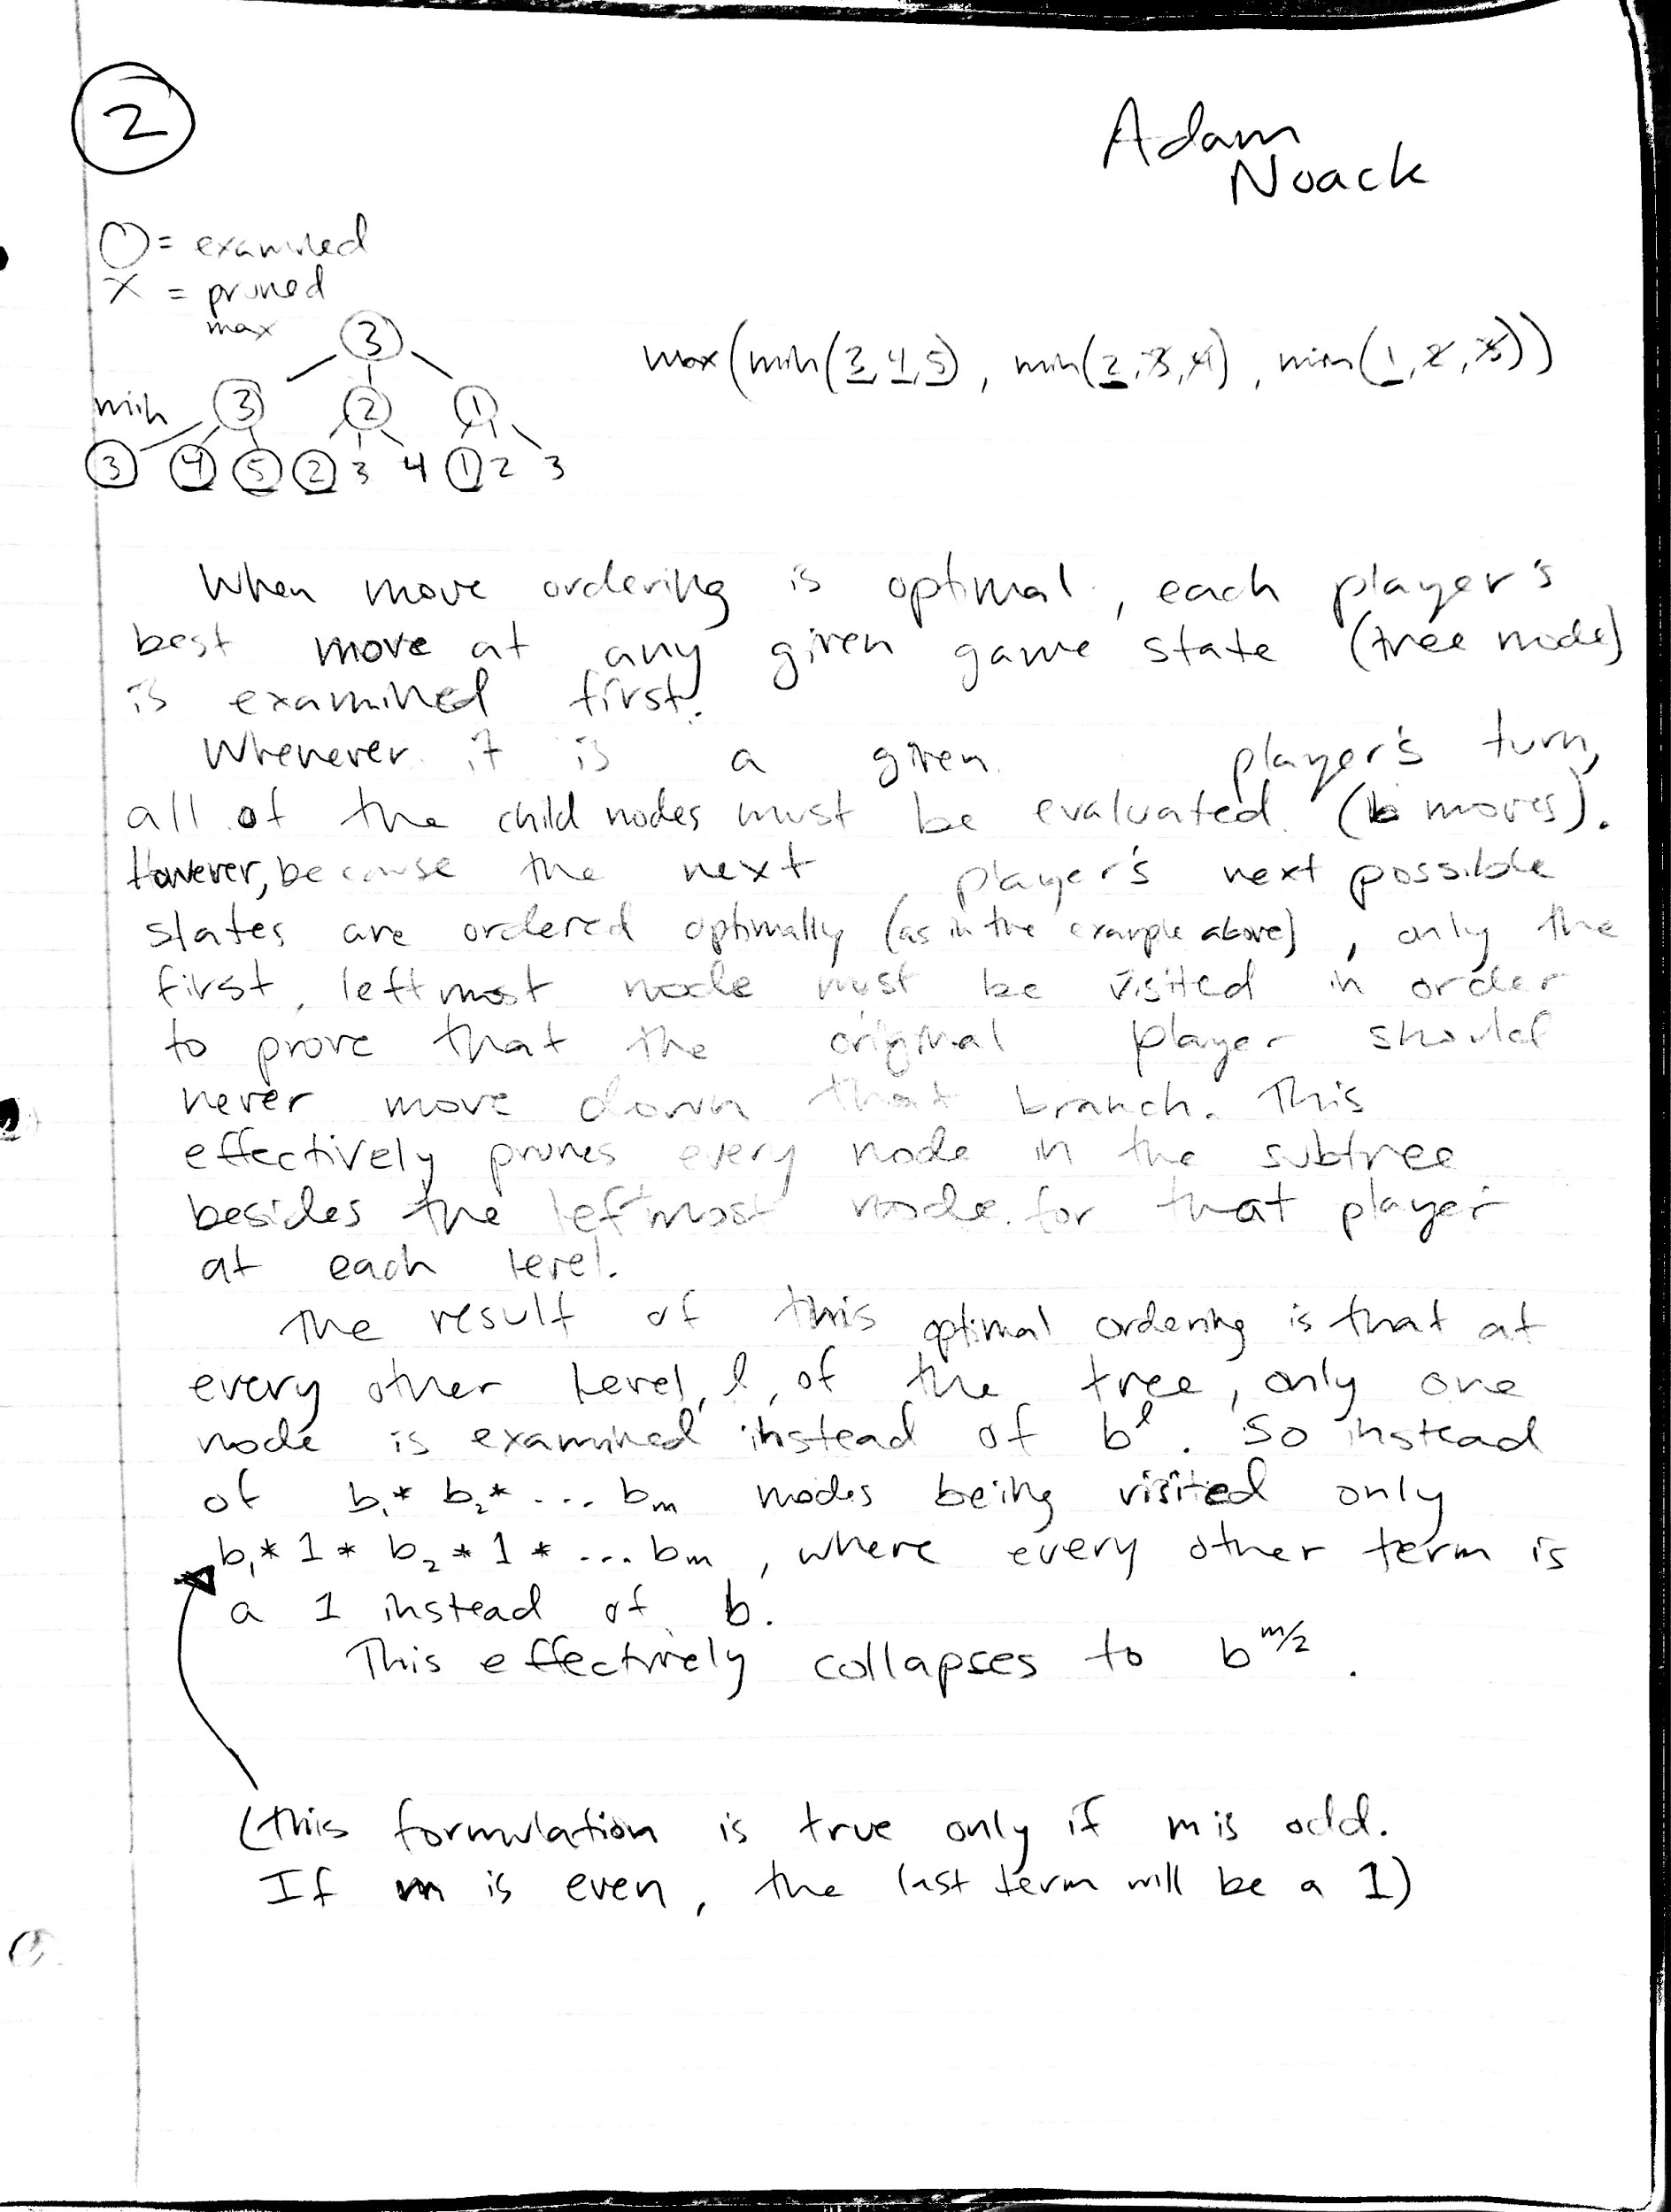 2
Adam
Noack
O = examined
X = pruned
max 3
max(min(3,4,5), min(2,3,4), min(1,2,3))
min 3 2 1
3 4 5 2 3 4 1 2 3
When move ordering is optimal, each player's
best move at any given game state (tree node)
is examined first.
Whenever it is a given player's turn,
all of the child nodes must be evaluated (b moves).
However, because the next player's next possible
states are ordered optimally (as in the example above), only the
first, leftmost node must be visited in order
to prove that the original player should
never move down that branch. This
effectively prunes every node in the subtree
besides the leftmost node for that player
at each level.
The result of this optimal ordering is that at
every other level, l, of the tree, only one
node is examined instead of b^l. So instead
of b₁* b₂* ... bₘ nodes being visited only
b₁* 1 * b₂ * 1 * ... bₘ, where every other term is
a 1 instead of b.
This effectively collapses to b^m/2.
(this formulation is true only if m is odd.
If m is even, the last term will be a 1)